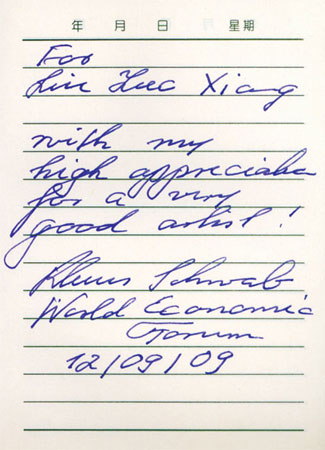 年 月 日 星期
For
Liu Huo Xiang
with my
high appreciation
for a very
good artist!
Klaus Schwab
World Economic
Forum
12/09/09